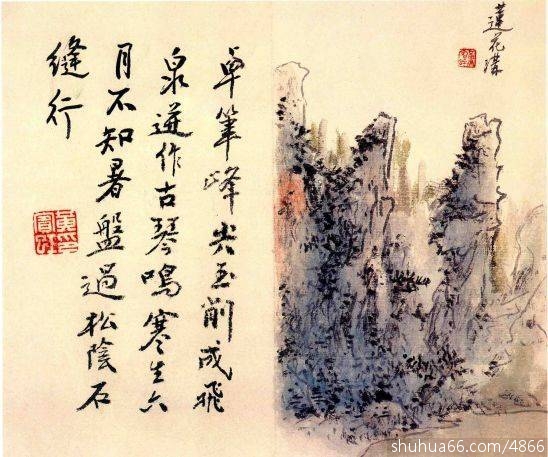 蓮花溝
卓筆峰尖玉削成飛
泉迸作古琴鳴寒生六
月不知暑盤過松陰石
縫行
shuhua66.com/4866